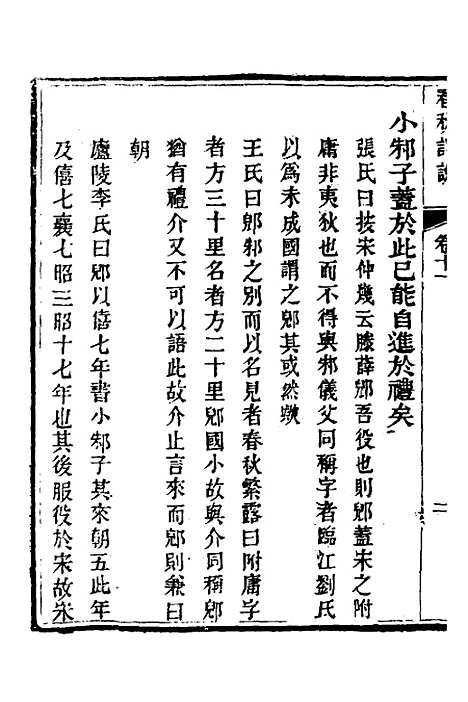 春秋詳說
卷十一
二
小邾子蓋於此已能自進於禮矣
張氏曰按宋仲幾云滕薛郳吾役也則郳蓋宋之附
庸非夷狄也而不得與邾儀父同稱字者臨江劉氏
以爲未成國謂之郳其或然歟
王氏曰郳邾之別而以名見者春秋繁露曰附庸字
者方三十里名者方二十里郳國小故與介同稱郳
猶有禮介又不可以語此故介止言來而郳則兼曰
朝
廬陵李氏曰郳以僖七年書小邾子其來朝五此年
及僖七襄七昭三昭十七年也其後服役於宋故宋